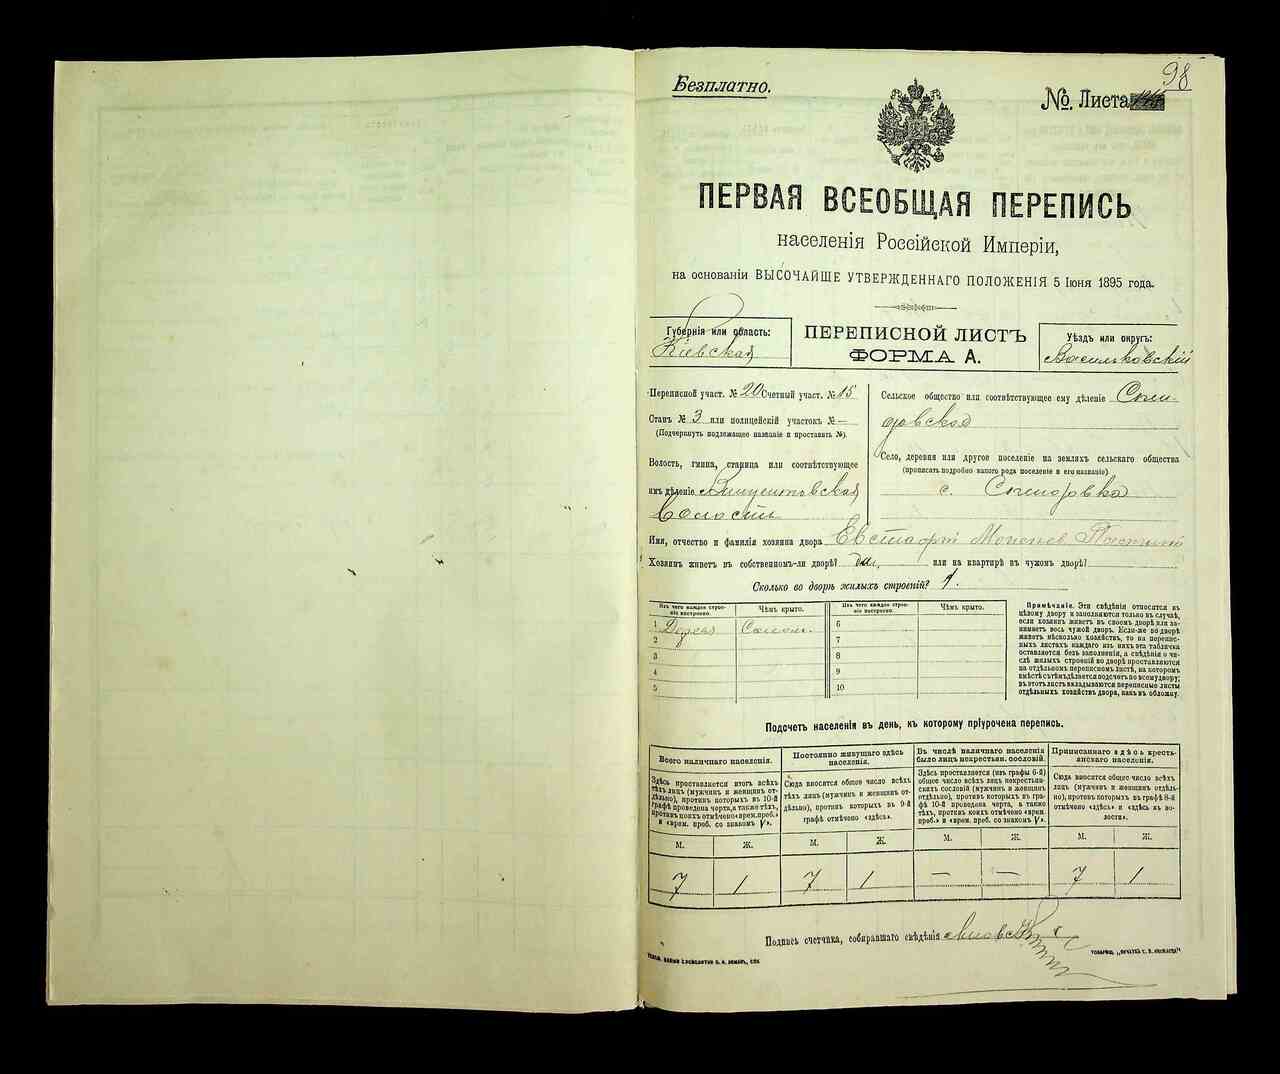 98
Безплатно.
№. Листа
ПЕРВАЯ ВСЕОБЩАЯ ПЕРЕПИСЬ
населенія Россійской Имперіи,
на основаніи ВЫСОЧАЙШЕ УТВЕРЖДЕННАГО ПОЛОЖЕНІЯ 5 Іюня 1895 года.
Губернія или область:
Кіевская
ПЕРЕПИСНОЙ ЛИСТЪ
ФОРМА А.
Уѣздъ или округъ:
Васильковскій
Переписной участ. № 20 Счетный участ. № 15
Станъ № 3 или полицейскій участокъ № —
(Подчеркнуть подлежащее названіе и проставить №).
Волость, гмина, станица или соотвѣтствующее
имъ дѣленіе Винцентовская
Волость
Сельское общество или соотвѣтствующее ему дѣленіе
Село, деревня или другое поселеніе на земляхъ сельскаго общества
(прописать подробно какого рода поселеніе и его названіе)
с.
Имя, отчество и фамилія хозяина двора
Хозяинъ живетъ въ собственномъ-ли дворѣ? или на квартирѣ въ чужомъ дворѣ?
Сколько во дворѣ жилыхъ строеній? 1.
Изъ чего каждое строе-
ніе построено.
Чѣмъ крыто.
1 Дерев Солом.
2
3
4
5
Изъ чего каждое строе-
ніе построено.
Чѣмъ крыто.
6
7
8
9
10
Примѣчаніе. Эти свѣдѣнія относятся къ
цѣлому двору и заполняются только въ случаѣ,
если хозяинъ живетъ въ своемъ дворѣ или за-
нимаетъ весь чужой дворъ. Если-же во дворѣ
живетъ нѣсколько хозяйствъ, то на перепис-
ныхъ листахъ каждаго изъ нихъ эта табличка
оставляется безъ заполненія, а свѣдѣнія о чи-
слѣ жилыхъ строеній во дворѣ проставляются
на отдѣльномъ переписномъ листѣ, на которомъ
вмѣстѣ съ тѣмъ дѣлается подсчетъ по всему двору;
въ этотъ листъ вкладываются переписные листы
отдѣльныхъ хозяйствъ двора, какъ въ обложку.
Подсчетъ населенія въ день, къ которому пріурочена перепись.
Всего наличнаго населенія.
Здѣсь проставляется итогъ всѣхъ
тѣхъ лицъ (мужчинъ и женщинъ от-
дѣльно), противъ которыхъ въ 10-й
графѣ проведена черта, а также тѣхъ,
противъ коихъ отмѣчено «врем. преб.»
и «врем. преб. со знакомъ V».
М. Ж.
7 1
Постоянно живущаго здѣсь
населенія.
Сюда вносится общее число всѣхъ
тѣхъ лицъ (мужчинъ и женщинъ от-
дѣльно), противъ которыхъ въ 9-й
графѣ отмѣчено «здѣсь».
М. Ж.
7 1
Въ числѣ наличнаго населенія
было лицъ некрестьян. сословій.
Здѣсь проставляется (изъ графы 6-й)
общее число всѣхъ лицъ некрестьян-
скихъ сословій (мужчинъ и женщинъ
отдѣльно), противъ которыхъ въ гра-
фѣ 10-й проведена черта, а также
тѣхъ, противъ коихъ отмѣчено «врем.
преб.» и «врем. преб. со знакомъ V».
М. Ж.
— —
Приписаннаго здѣсь кресть-
янскаго населенія.
Сюда вносится общее число всѣхъ
лицъ (мужчинъ и женщинъ отдѣль-
но), противъ которыхъ въ графѣ 8-й
отмѣчено «здѣсь» и «здѣсь къ во-
лости».
М. Ж.
7 1
Подпись счетчика, собиравшаго свѣдѣнія